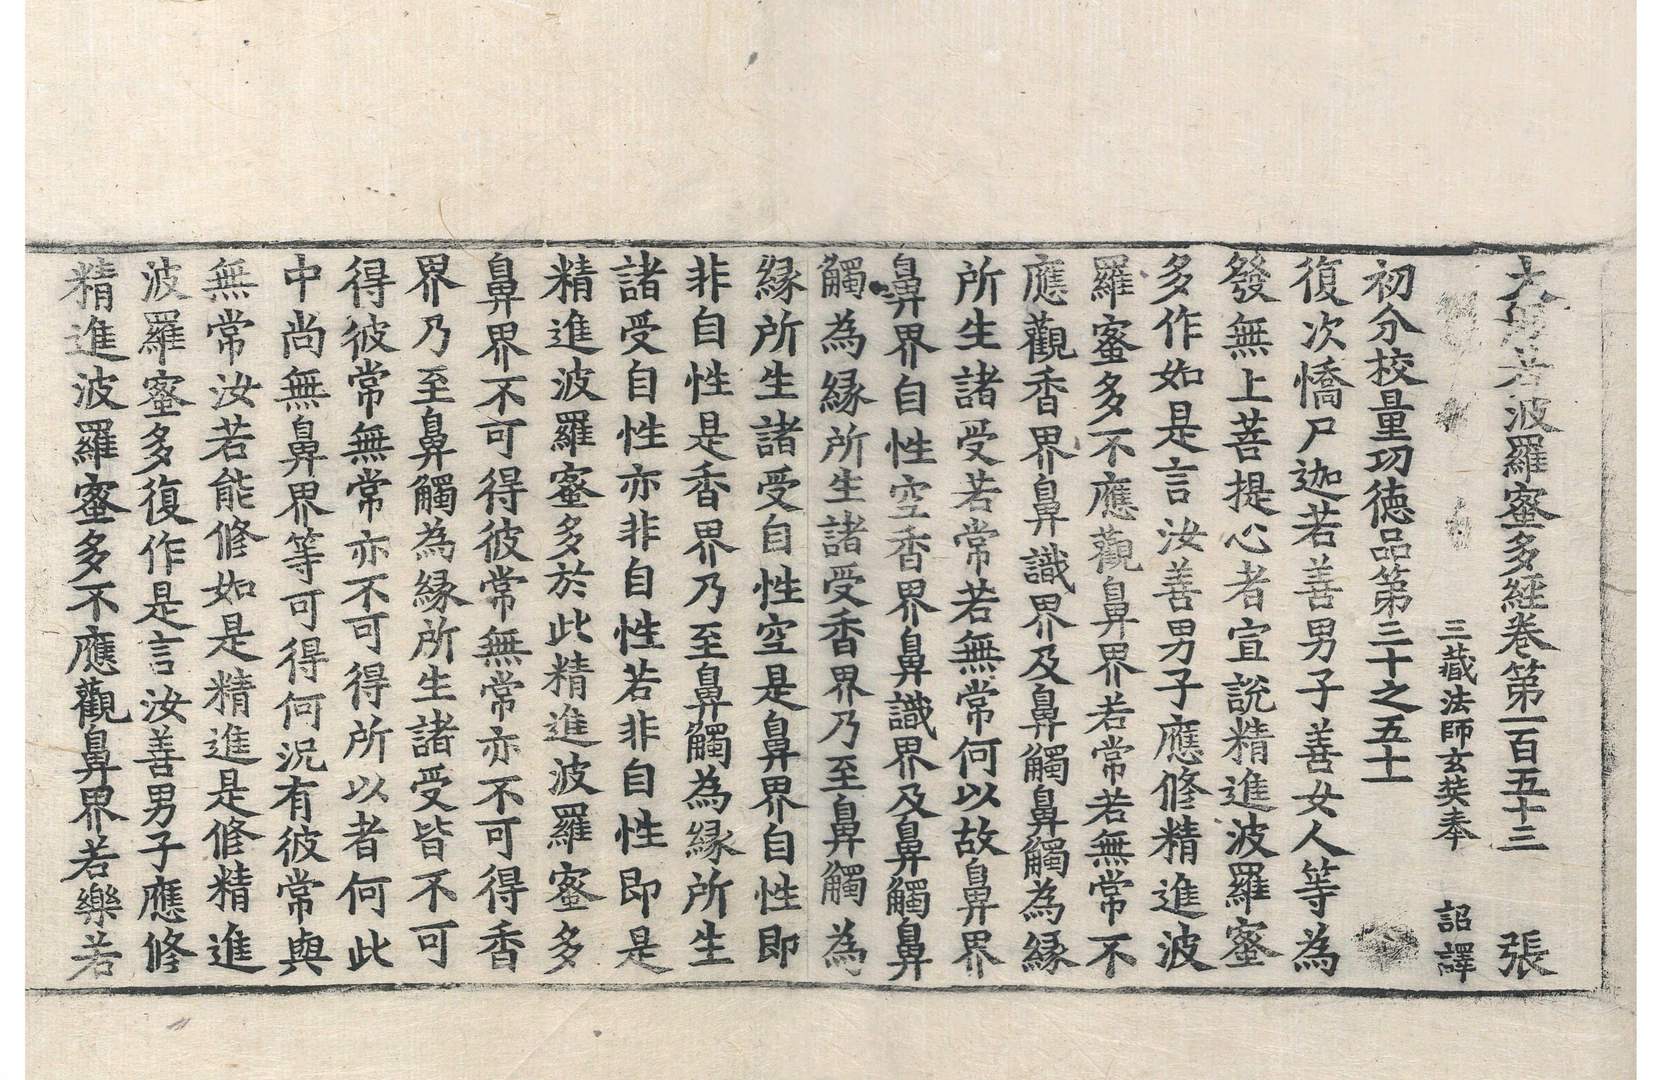 大般若波羅蜜多經卷第一百五十三 張
三藏法師玄奘奉 詔譯
初分校量功德品第三十之五十一
復次憍尸迦若善男子善女人等為
發無上菩提心者宣說精進波羅蜜
多作如是言汝善男子應修精進波
羅蜜多不應觀鼻界若常若無常不
應觀香界鼻識界及鼻觸鼻觸為緣
所生諸受若常若無常何以故鼻界
鼻界自性空香界鼻識界及鼻觸鼻
觸為緣所生諸受香界乃至鼻觸為
緣所生諸受自性空是鼻界自性即
非自性是香界乃至鼻觸為緣所生
諸受自性亦非自性若非自性即是
精進波羅蜜多於此精進波羅蜜多
鼻界不可得彼常無常亦不可得香
界乃至鼻觸為緣所生諸受皆不可
得彼常無常亦不可得所以者何此
中尚無鼻界等可得何況有彼常與
無常汝若能修如是精進是修精進
波羅蜜多復作是言汝善男子應修
精進波羅蜜多不應觀鼻界若樂若